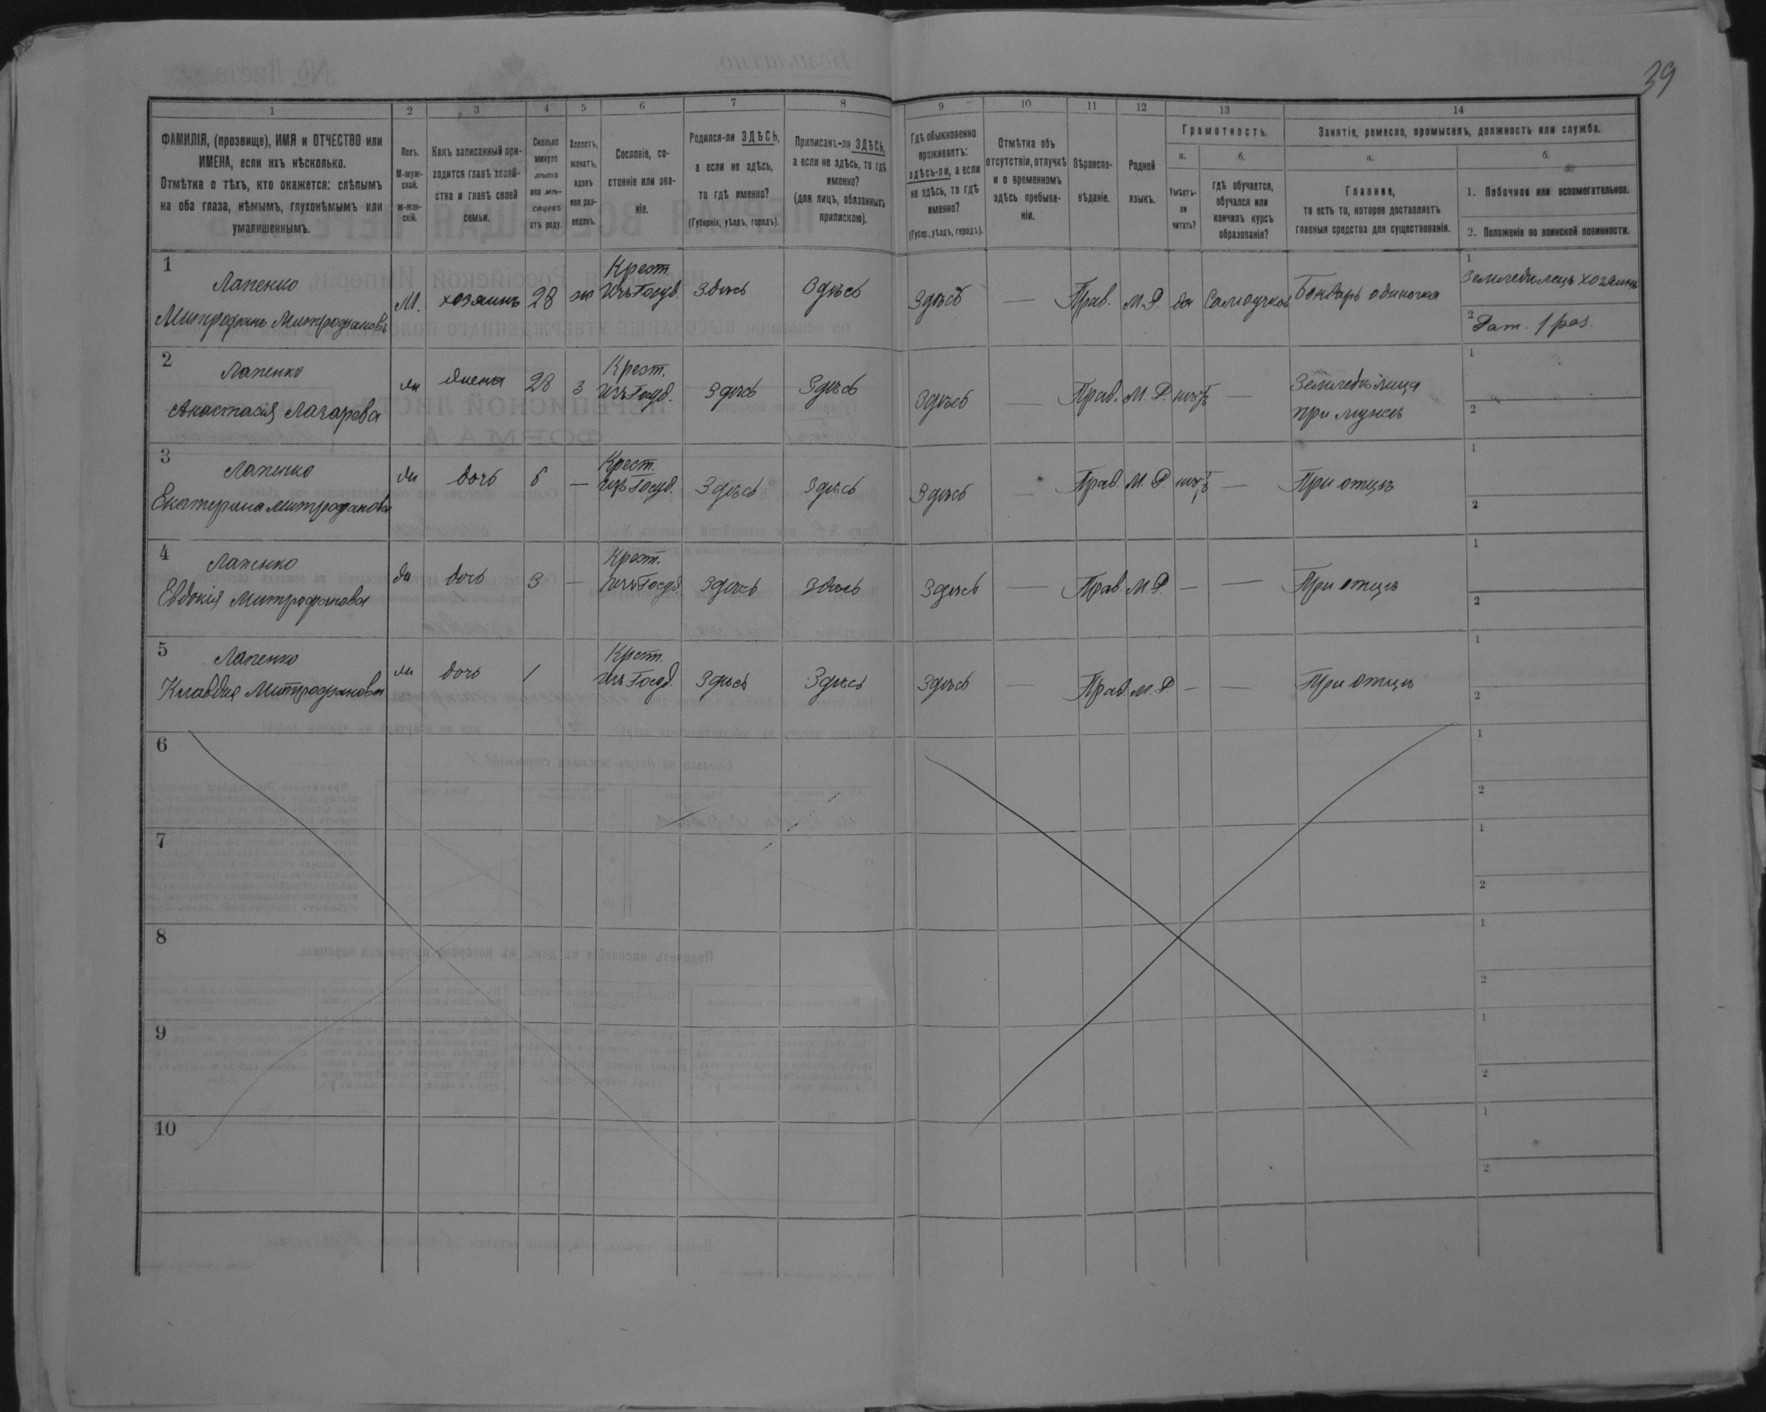 39
1 2 3 4 5 6 7 8 9 10 11 12 13 14
ФАМИЛІЯ, (прозвище), ИМЯ и ОТЧЕСТВО или
ИМЕНА, если ихъ нѣсколько.
Отмѣтка о тѣхъ, кто окажется: слѣпымъ
на оба глаза, нѣмымъ, глухонѣмымъ или
умалишеннымъ.
Полъ.
М-муж-
ской.
ж-жен-
скій.
Какъ записанный при-
ходится главѣ хозяй-
ства и главѣ своей
семьи.
Сколько
минуло
лѣтъ
или мѣ-
сяцевъ
отъ роду.
Холостъ,
женатъ,
вдовъ
или раз-
веденъ.
Сословіе, со-
стояніе или зва-
ніе.
Родился-ли ЗДѢСЬ,
а если не здѣсь,
то гдѣ именно?
(Губернія, уѣздъ, городъ).
Приписанъ-ли ЗДѢСЬ,
а если не здѣсь, то гдѣ
именно?
(для лицъ, обязанныхъ
припискою).
Гдѣ обыкновенно
проживаетъ:
здѣсь-ли, а если
не здѣсь, то гдѣ
именно?
(Губер., уѣздъ, городъ).
Отмѣтка объ
отсутствіи, отлучкѣ
и о временномъ
здѣсь пребыва-
ніи.
Вѣроиспо-
вѣданіе.
Родной
языкъ.
Грамотность.
а.
Умѣетъ-
ли
читать?
б.
Гдѣ обучается,
обучался или
кончилъ курсъ
образованія?
Занятіе, ремесло, промыселъ, должность или служба.
а.
Главное,
то есть то, которое доставляетъ
главныя средства для существованія.
б.
1. Побочное или вспомогательное.
2. Положеніе по воинской повинности.
1
Лапенко
Митрофанъ Митрофановъ
М. хозяинъ 28 ж
Крест.
изъ Госуд.
Здѣсь Здѣсь Здѣсь — Прав. М.Р. да Самоучкой Бондарь одиночка
1 Земледѣлецъ хозяинъ
2 Рат. 1 раз.
2
Лапенко
Анастасія Лазарева
ж жена 28 з
Крест.
изъ Госуд.
Здѣсь Здѣсь Здѣсь — Прав. М.Р. нѣтъ —
Земледѣлица
при мужѣ
1
2
3
Лапенко
Екатерина Митрофанова
ж дочь 6 —
Крест.
изъ Госуд.
Здѣсь Здѣсь Здѣсь — Прав. М.Р. нѣтъ — При отцѣ
1
2
4
Лапенко
Евдокія Митрофанова
ж дочь 3 —
Крест.
изъ Госуд.
Здѣсь Здѣсь Здѣсь — Прав. М.Р. — — При отцѣ
1
2
5
Лапенко
Клавдія Митрофанова
ж дочь 1
Крест.
изъ Госуд.
Здѣсь Здѣсь Здѣсь — Прав. М.Р. — — При отцѣ
1
2
6
1
2
7
1
2
8
1
2
9
1
2
10
1
2